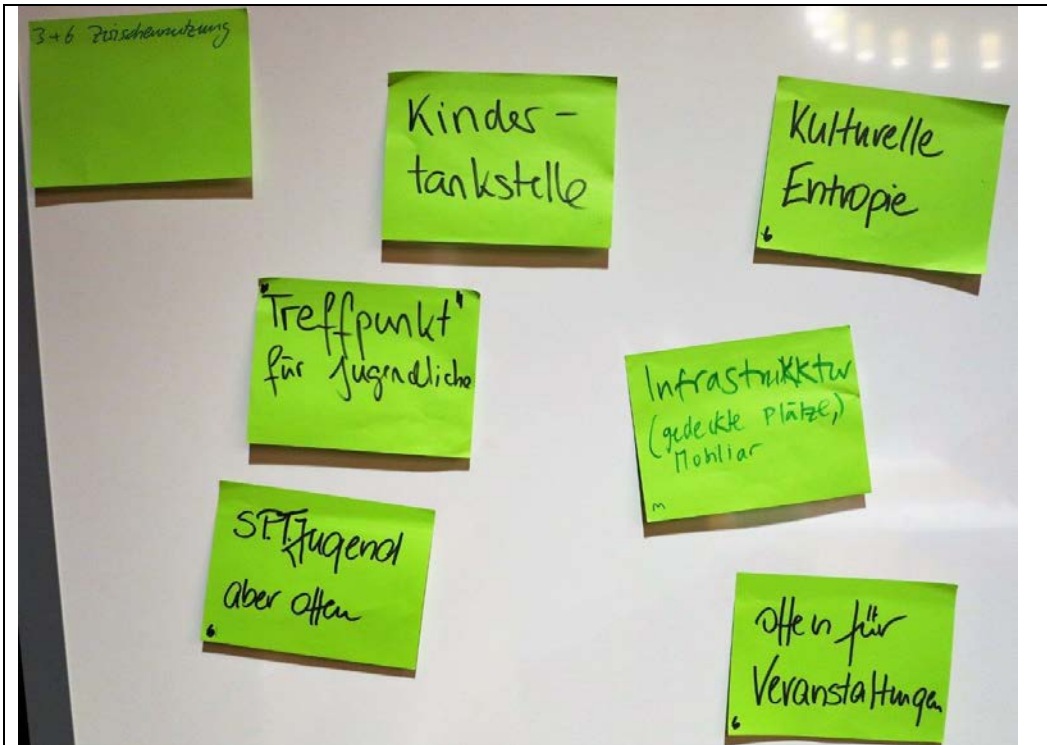 3+6 Zwischennutzung
Kinder-
tankstelle
Kulturelle
Entropie
6
"Treffpunkt"
für Jugendliche
Infrastrukktur
(gedeckte Plätze,)
Mobiliar
m
Jugend
aber offen
6
offen für
Veranstaltungen
6